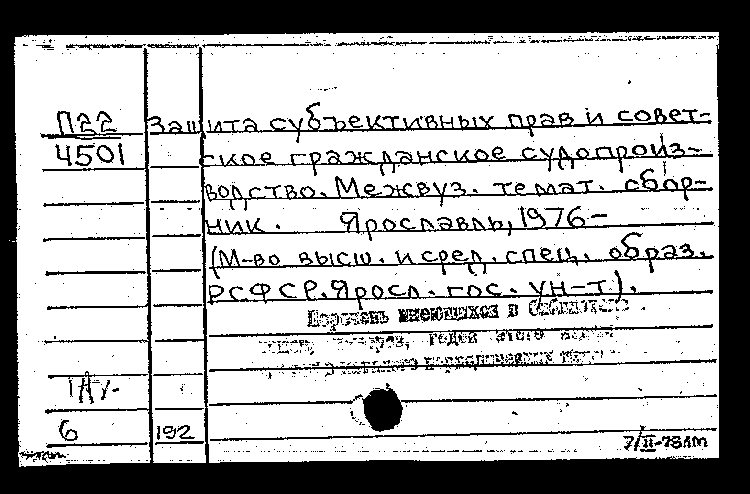 П22 Защита субъективных прав и совет-
4501 ское гражданское судопроиз-
водство. Межвуз. темат. сбор-
ник. Ярославль, 1976-
(М-во высш. и сред. спец. образ.
РСФСР. Яросл. гос. ун-т).
Перечень имеющихся в библиотеке
годов этого
6 192